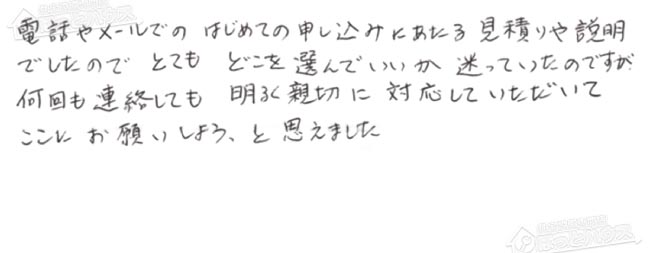 電話やメールでの はじめての申し込みにあたる 見積りや説明
でしたので とても どこを選んでいいか 迷っていたのですが
何回も連絡しても 明るく親切に 対応していただいて
ここに お願いしよう、と 思えました